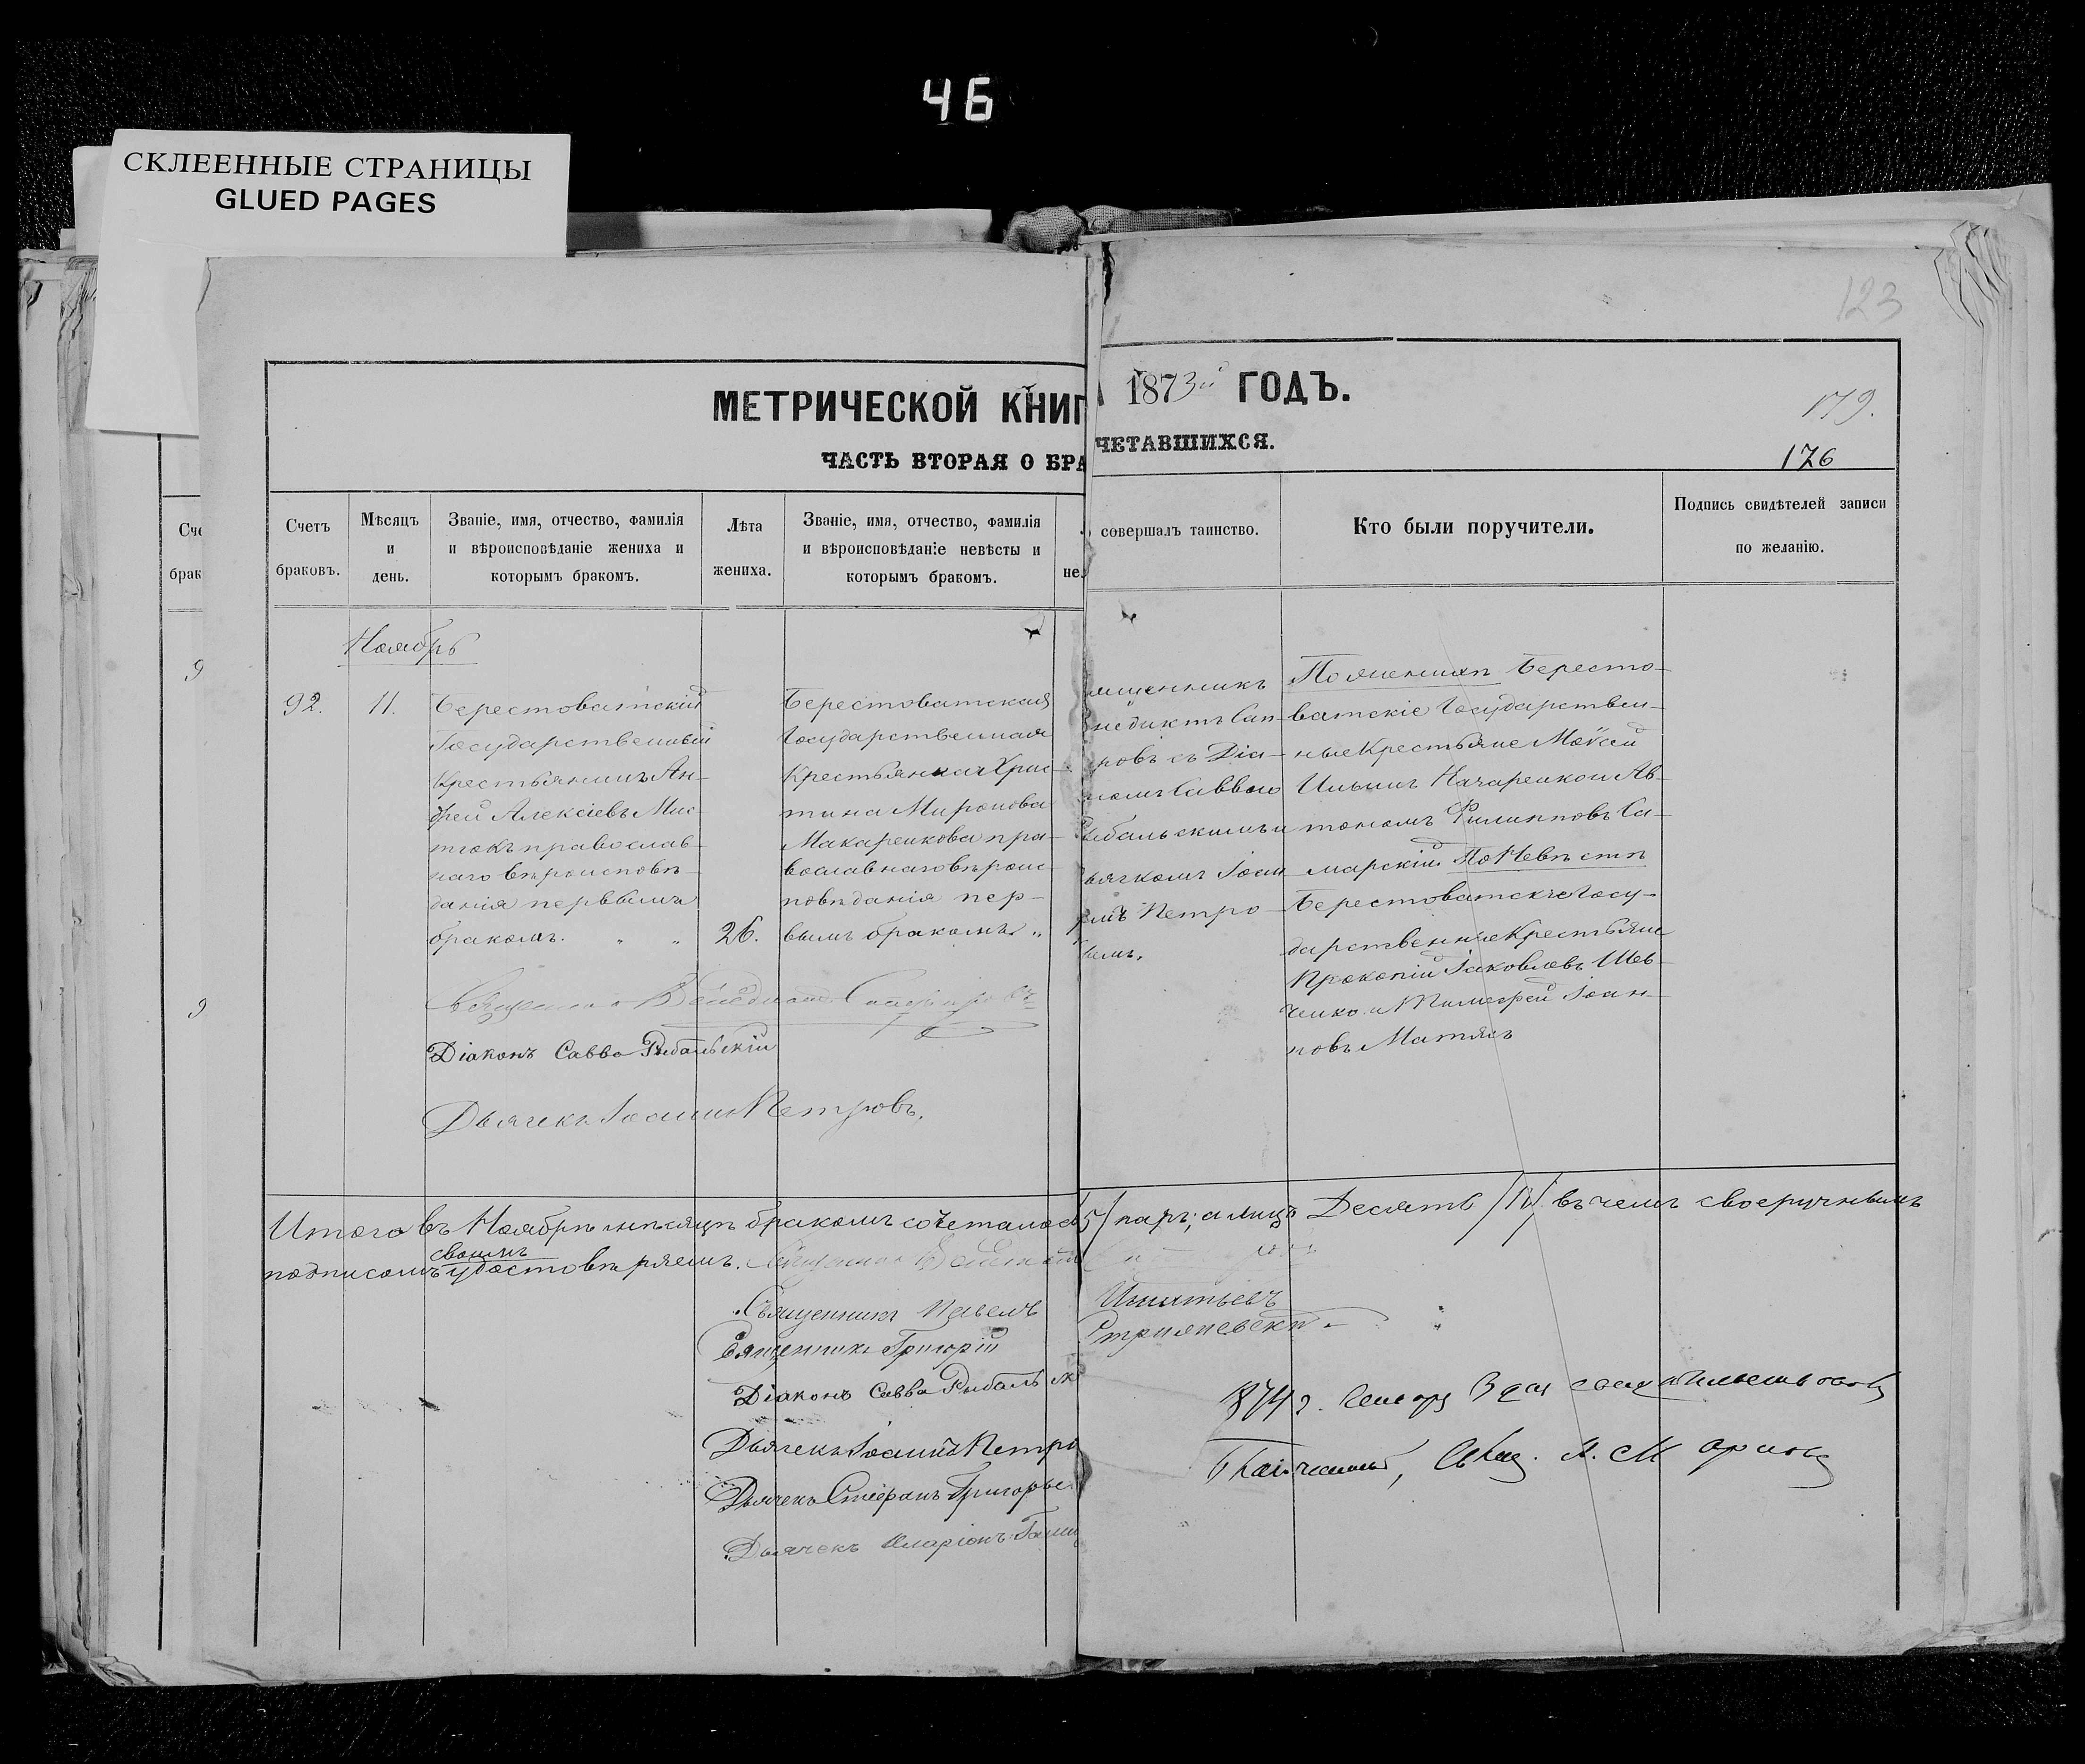 46
СКЛЕЕННЫЕ СТРАНИЦЫ
GLUED PAGES
123
МЕТРИЧЕСКОЙ КНИГ
1873й ГОДЪ.
179.
ЧАСТЬ ВТОРАЯ О БРА
ЧЕТАВШИХСЯ.
176
Сче
брак
9
9
Счетъ
браковъ.
Мѣсяцъ
и
день.
Званіе, имя, отчество, фамилія
и вѣроисповѣданіе жениха и
которымъ бракомъ.
Лѣта
жениха.
Званіе, имя, отчество, фамилія
и вѣроисповѣданіе невѣсты и
которымъ бракомъ.
не
совершалъ таинство.
Кто были поручители.
Подпись свидѣтелей записи
по желанію.
Ноябрь
92.
11.
Берестоватскій
Государственный
Крестьянинъ Ан-
дрей Алексіевъ Мис-
православ-
наго вѣроисповѣ-
данія первымъ
бракомъ. „ „
26.
Берестоватская
Государственная
Крестьянка Хрис-
тина Миронова
Макаренкова пра-
вославнаго вѣроис-
повѣданія пер-
вымъ бракомъ „
ященникъ
недиктъ Сап-
новъ съ Діа-
номъ Саввою
ыбальскимъ и
ьячкомъ Іоан
Петро-
вымъ.
По женихѣ Бересто-
ватскіе Государствен-
ные Крестьяне Моѵсей
Ильинъ Ав-
Филипповъ Са-
марскій По Невѣстѣ
Берестоватскіе Госу-
дарственные Крестьяне
Прокопій Іаковлевъ Шев-
ченко и Тимофей Іоан-
новъ Матяхъ
Діаконъ Савва Рыбальскій
Дьячекъ Іоаннъ Петровъ.
Итого въ Ноябрѣ мѣсяцѣ бракомъ сочеталось
5/ паръ; а лицъ Десять /10/ въ чемъ своеручнымъ
своимъ
подписомъ удостовѣряемъ.
Священникъ Павелъ
Игнатьевъ
Священникъ Григорій
Діаконъ Савва Рыбальск
Дьячекъ Іоаннъ Петро
Дьячекъ Стефанъ Григорье
Дьячекъ Иларіонъ
1874 г.